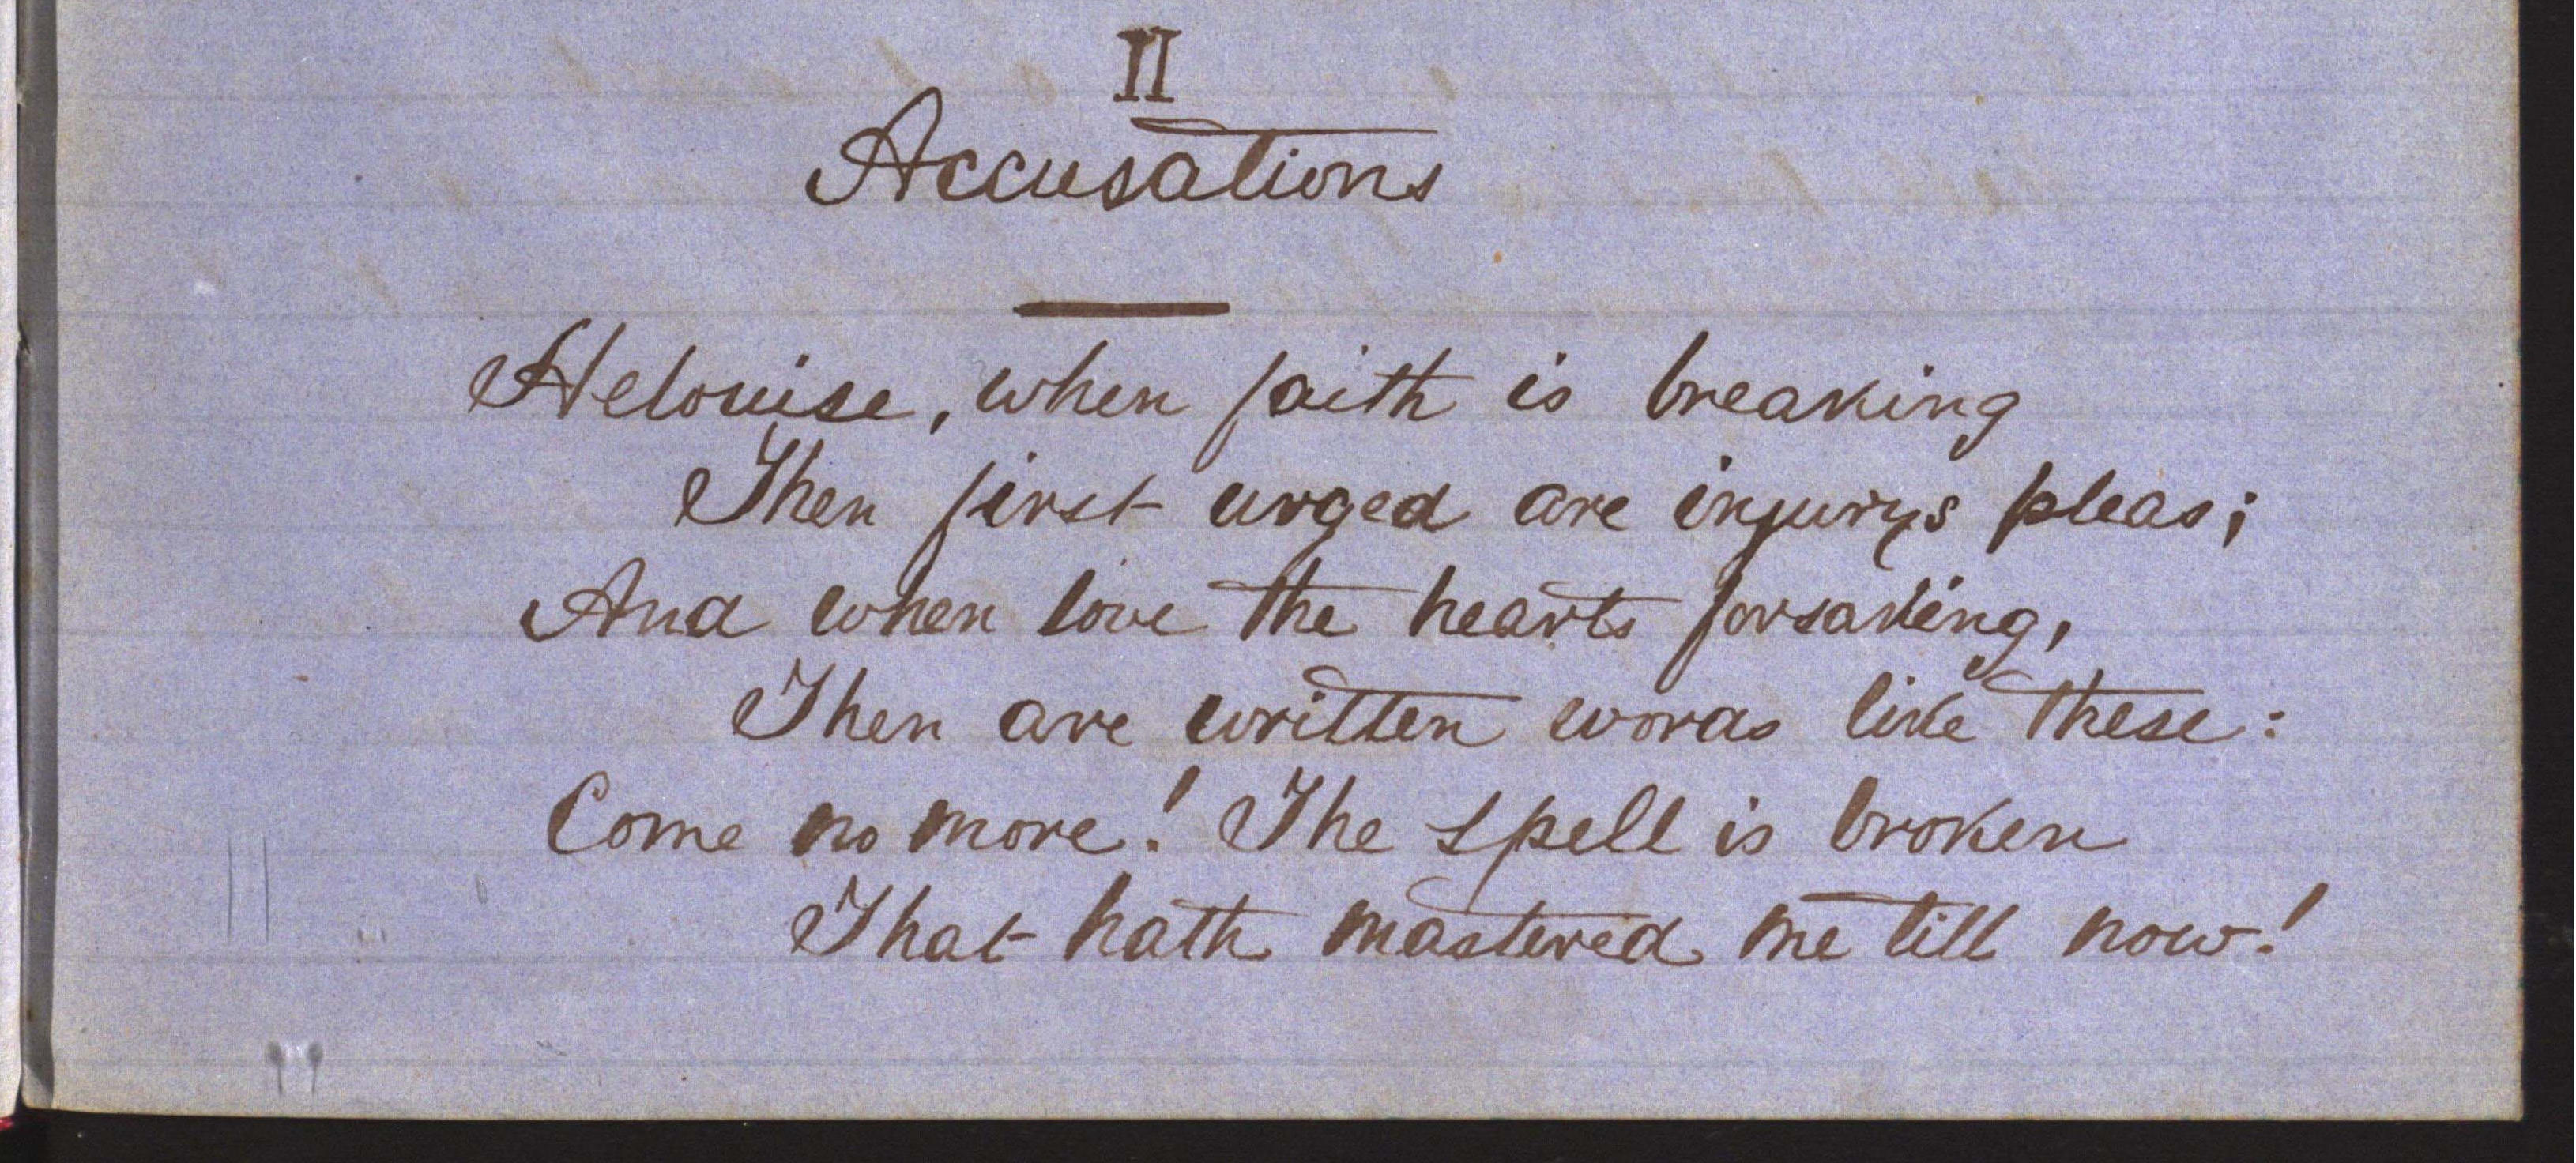 II
Accusations
Helouise, when faith is breaking
Then first urged are injurys pleas;
And when love the hearts forsaking,
Then are written words like these:
Come no more! The spell is broken
That hath mastered me till now!